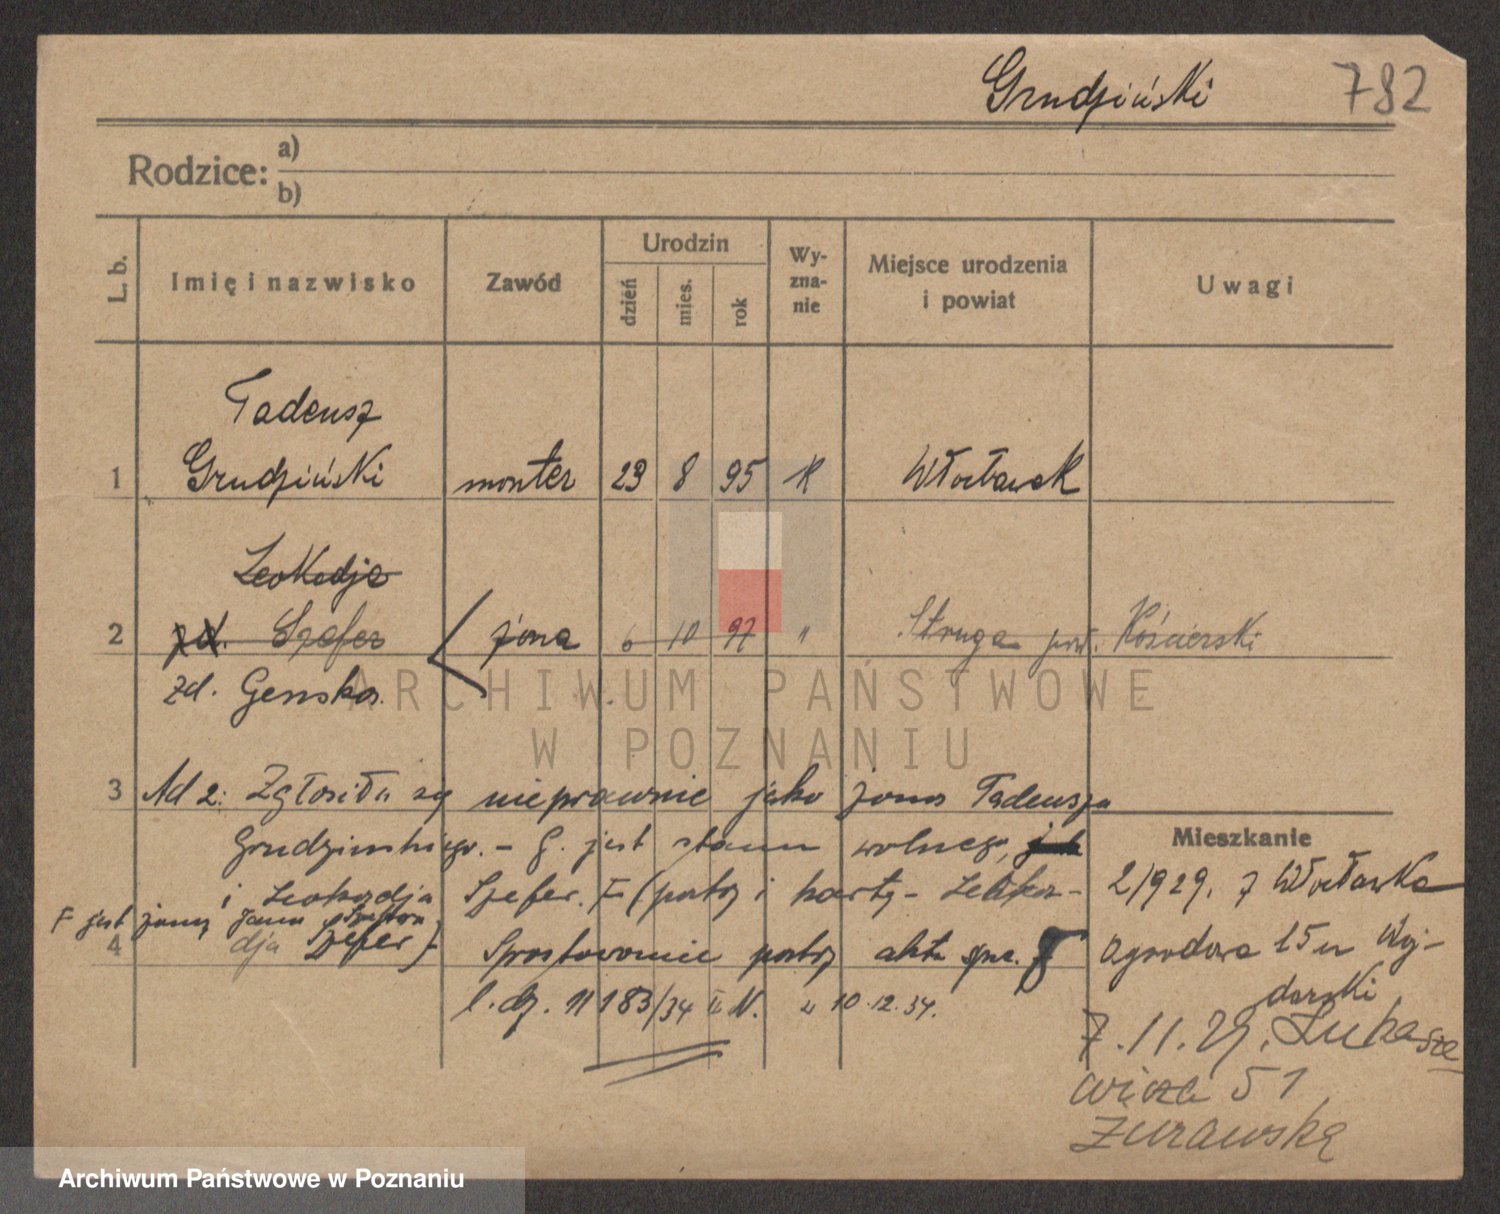 Grudziński 782
Rodzice: a)
b)
L. b. Imię i nazwisko Zawód Urodzin dzień mies. rok Wy-zna-nie Miejsce urodzenia i powiat Uwagi
Tadeusz
1 Grudziński monter 23 8 95 K Włocławek
Leokadja
2 zd. Szefer żona 6 10 97 " Struga pow. Kościerski
zd. Genska
ARCHIWUM PAŃSTWOWE
W POZNANIU
3 Ad 2: Zgłosiła się nieprawnie jako żona Tadeusza
Grudzińskiego. – G. jest stanu wolnego,
Mieszkanie
i Leokadja Szefer. F (patrz i kartę – Leoka-
2/929. z Włocławka
F jest żoną Jana
4 dja Szefer) Sprostowanie patrz akta
Ogrodowa 15 u Woj-
darski
l. dz. 11183/34 II N. z 10.12.34.
7.11.29. Łukasze
wicza 51
Żurawska
Archiwum Państwowe w Poznaniu